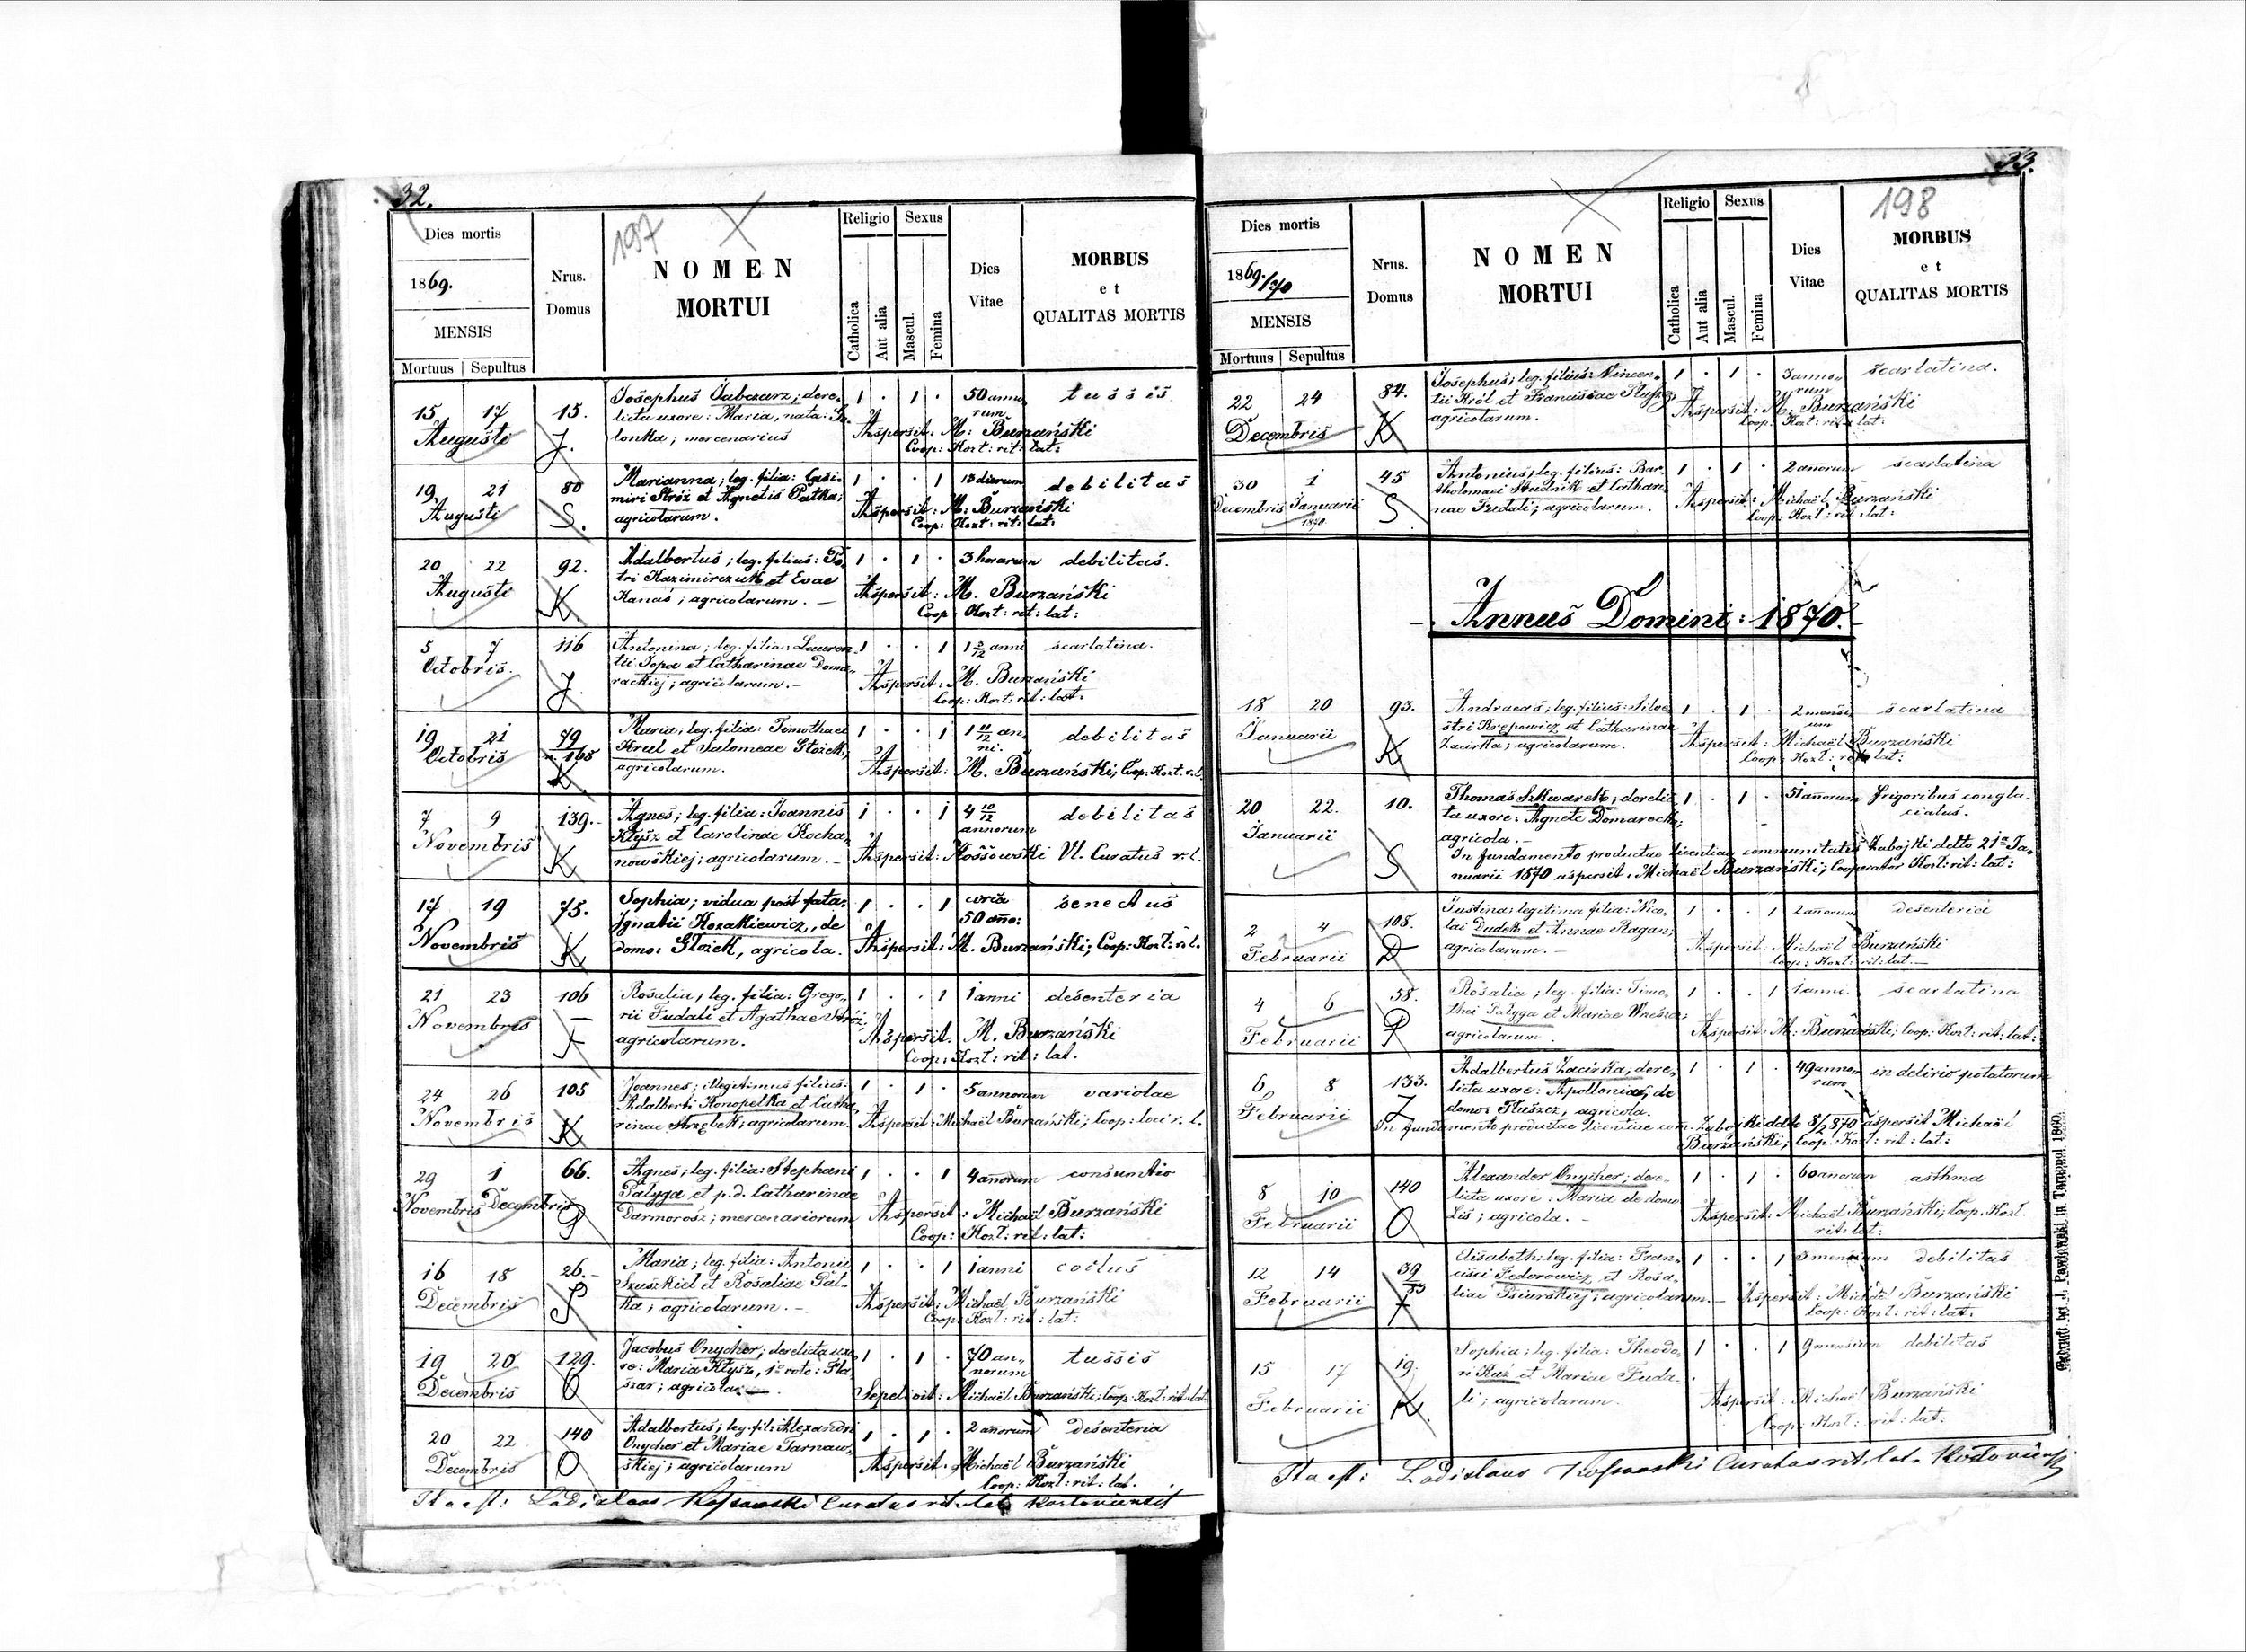 32.
197
Dies mortis
1869.
MENSIS
Mortuus | Sepultus
Nrus.
Domus
NOMEN
MORTUI
Religio
Catholica
Aut alia
Sexus
Mascul.
Femina
Dies
Vitae
MORBUS
et
QUALITAS MORTIS
15 17 15. Josephus Jabczarz; dere- 1 . 1 . 50 anno- tussis
licta uxore: Maria, nata: rum
Augusti J. lonka; mercenarius Aspersit: M: Burzański
Coop: Kozł: rit: lat:
19 21 80 Marianna; leg. filia: Casi- 1 . . 1 13 dierum debilitas
miri Stróż et Agnetis Patka;
Augusti S. agricolarum. Aspersit: M. Burzański
Coop: Kozł: rit: lat:
20 22 92. Adalbertus; leg. filius: Pe- 1 . 1 . 3 horarum debilitas.
tri Kazimirczuk et Evae
Augusti K. Kanas; agricolarum. — Aspersit: M. Burzański
Coop: Kozł: rit: lat:
5 7 116 Antonina; leg. filia: Lauren- 1 . . 1 1 anni scarlatina.
tii Topa et Catharinae Doma-
Octobris. J. rackiej; agricolarum. — Aspersit: M. Burzański
Coop: Kozł: rit: lat:
19 21 79 Maria; leg. filia: Timothaei 1 . . 1 1 11/12 an- debilitas
n. 165 Krul et Salomeae Głożek; ni.
Octobris K agricolarum. Aspersit: M. Burzański; Coop: Kozł. r. l.
7 9 139. Agnes; leg. filia: Joannis 1 . . 1 4 10/12 debilitas
Kłysz et Carolinae Kocha- annorum
Novembris K nowskiej; agricolarum. — Aspersit: Kossowski Vl. Curatus r. l.
17 19 75. Sophia; vidua post fata: 1 . . 1 circa senectus
Ignatii Kozakiewicz, de 50 año:
Novembris K domo: Głożek, agricola. Aspersit: M. Burzański; Coop: Kozł: r. l.
21 23 106 Rosalia; leg. filia: Grego- 1 . . 1 1 anni desenteria
rii Fudali et Agathae Stróż;
Novembris F agricolarum. Aspersit. M. Burzański
Coop: Kozł: rit: lat.
24 26 105 Joannes; illegitimus filius: 1 . 1 . 5 annorum variolae
Adalberti Konopelka et Catha-
Novembris K rinae Strzębek; agricolarum. Aspersit: Michaël Burzański; Coop: loci r. l.
29 1 66. Agnes; leg. filia: Stephani 1 . . 1 4 añorum consuntio
Pałyga et p. d. Catharinae
Novembris Decembris P Darmorosz; mercenariorum Aspersit: Michaël Burzański
Coop: Kozł: rit: lat:
16 18 26. Maria; leg. filia: Antonii 1 . . 1 1 anni coclus
Szuszkiel et Rosaliae Pat-
Decembris S ka; agricolarum. — Aspersit: Michaël Burzański
Coop: Kozł: rit: lat:
19 20 129. Jacobus Onycher; derelicta uxo- 1 . 1 . 70 an- tussis
re: Maria Kłysz, 1º voto: norum
Decembris O szar; agricola. — Sepelivit: Michaël Burzański; Coop: Kozł: rit: lat:
20 22 140 Adalbertus; leg. fil: Alexandri 1 . 1 . 2 añorum desenteria
Onycher et Mariae Tarnaw-
Decembris O skiej; agricolarum Aspersit: Michaël Burzański
Coop: Kozł: rit: lat.
Ita est: Ladislaus Kossowski Curatus rit. lat. Kozłoviensis
33.
198
Dies mortis
1869./70
MENSIS
Mortuus | Sepultus
Nrus.
Domus
NOMEN
MORTUI
Religio
Catholica
Aut alia
Sexus
Mascul.
Femina
Dies
Vitae
MORBUS
et
QUALITAS MORTIS
22 24 84. Josephus; leg. filius: Vincen- 1 . 1 . 3 anno- scarlatina.
tii Król et Franciscae rum
Decembris K agricolarum. Aspersit: M. Burzański
Coop: Kozł: rit: lat:
30 1 45 Antonius; leg. filius: Bar- 1 . 1 . 2 añorum scarlatina
tholomaei Studnik et Cathari-
Decembris Januarii S nae Fudali; agricolarum. Aspersit: Michaël Burzański
1870. Coop: Kozł: rit: lat:
Annus Domini: 1870.
18 20 93. Andraeas; leg. filius: Silve- 1 . 1 . 2 mensi- scarlatina
stri Krępowicz et Catharinae um
Januarii K Zacirka; agricolarum. Aspersit: Michaël Burzański
Coop: Kozł: rit: lat:
20 22. 10. Thomas Szkwarek; derelic- 1 . 1 . 51 añorum frigoribus congla-
ta uxore: Agnete Domarecka; ciatus.
Januarii S agricola. —
In fundamento productae licentiae communitatis Zabojki ddto 21ª Ja-
nuarii 1870 aspersit: Michaël Burzański; Cooperator Kozł: rit: lat:
2 4 108. Justina; legitima filia: Nico- 1 . . 1 2 añorum desenteria
lai Dudek et Annae Ragan;
Februarii D agricolarum. — Aspersit: Michaël Burzański
Coop: Kozł: rit: lat. —
4 6 58. Rosalia; leg. filia: Timo- 1 . . 1 1 anni. scarlatina
thei Pałyga et Mariae
Februarii P agricolarum. Aspersit: M: Burzański; Coop: Kozł: rit: lat:
6 8 133. Adalbertus Zacirka; dere- 1 . 1 . 49 anno- in delirio potatorum
licta uxore: Apollonia; de rum
Februarii Z domo: Płuszcz, agricola.
In fundamento productae licentiae com. Zabojki ddto 8/2 870 aspersit Michaël
Burzański; Coop. Kozł: rit: lat:
8 10 140 Alexander Onycher; dere- 1 . 1 . 60 añorum asthma
licta uxore: Maria de domo
Februarii O Lis; agricola. — Aspersit: Michaël Burzański; Coop. Kozł.
rit: lat:
12 14 39 Elisabeth: leg. filia: Fran- 1 . . 1 3 mensium debilitas
83 cisci Fedorowicz et Rosa-
Februarii F liae Psiurskiej; agricolarum. — Aspersit: Michaël Burzański
Coop: Kozł: rit: lat.
15 17 19. Sophia; leg. filia: Theodo- 1 . . 1 9 mensium debilitas
ri Kuź et Mariae Fuda-
Februarii K. li; agricolarum. Aspersit: Michaël Burzański
Coop: Kozł: rit: lat:
Ita est: Ladislaus Kossowski Curatus rit. lat. Kozłoviensis
Gedruckt bei J. Pawłowski in Tarnopol 1860.